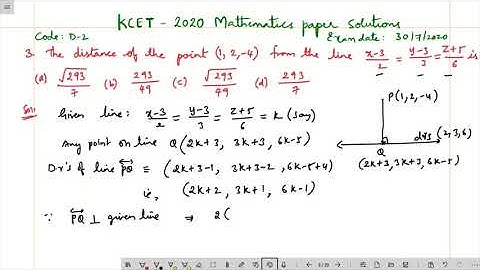 KCET - 2020 Mathematics paper solutions
Code: D-2
Exam date: 30/7/2020
3. The distance of the point (1, 2, -4) from the line x-3/2 = y-3/3 = z+5/6 is
(a) √293/7 (b) 293/49 (c) √293/49 (d) 293/7
Sol: Given line: x-3/2 = y-3/3 = z+5/6 = K (say)
Any point on line Q(2K+3, 3K+3, 6K-5)
D.r's of line PQ ≡ (2K+3-1, 3K+3-2, 6K-5+4)
ie, (2K+2, 3K+1, 6K-1)
∵ PQ ⊥ given line ⇒ 2(
P(1, 2, -4)
drs (2, 3, 6)
Q
(2K+3, 3K+3, 6K-5)